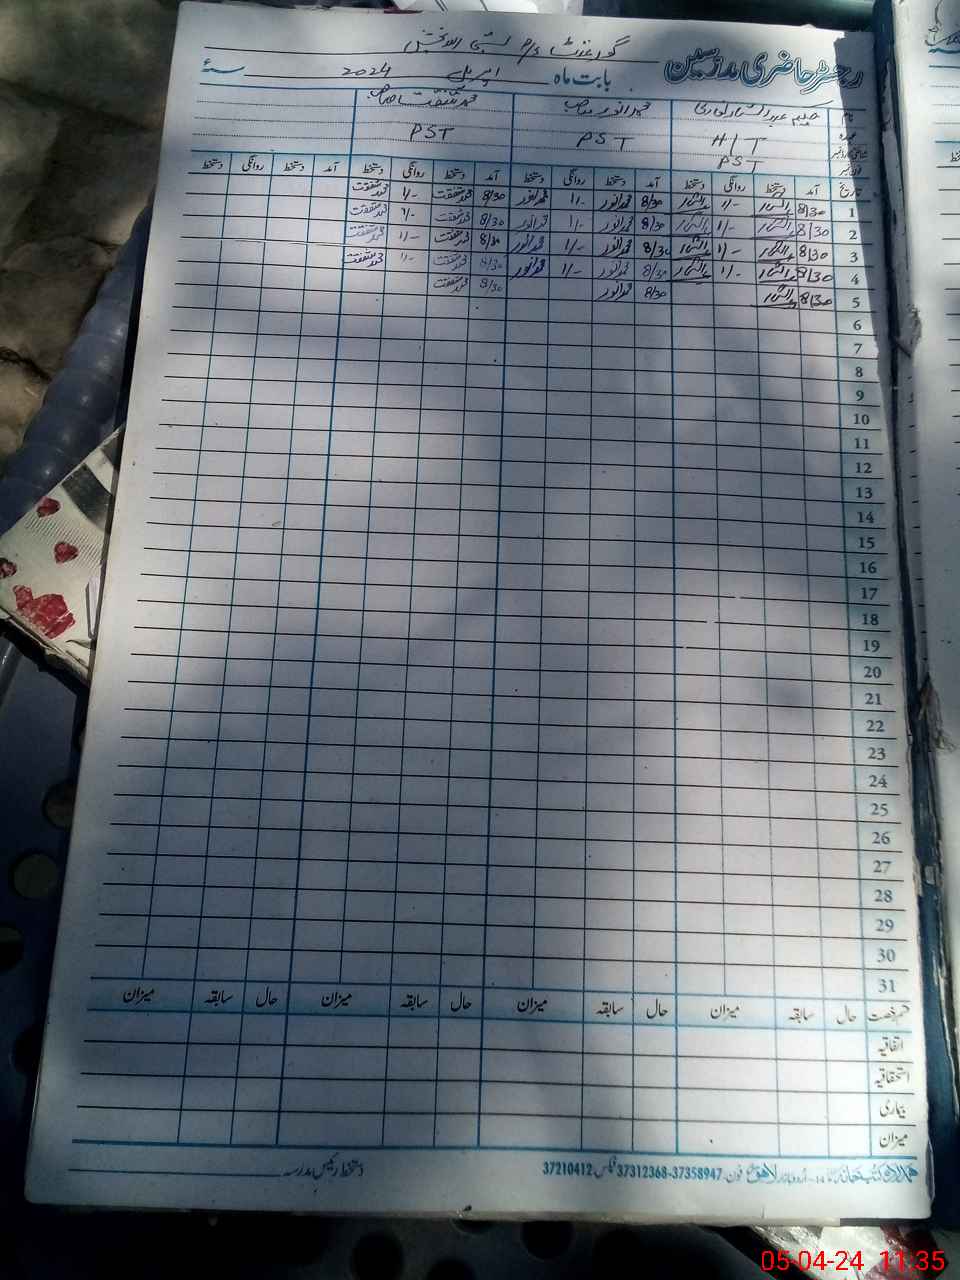 رجسٹر حاضری مدرسین گورنمنٹ
بابت ماہ اپریل 2024 سنہ
نام محمد انور صاحب محمد شفقت صاحب
عہدہ H/T PST PST
PST
تاریخ آمد دستخط روانگی دستخط آمد دستخط روانگی دستخط آمد دستخط روانگی دستخط آمد دستخط روانگی دستخط
1 8/30 1/- 8/30 محمد انور 1/- محمد انور 8/30 محمد شفقت 1/- محمد شفقت
2 8/30 1/- 8/30 محمد انور 1/- محمد انور 8/30 محمد شفقت 1/- محمد شفقت
3 8/30 1/- 8/30 محمد انور 1/- محمد انور 8/30 محمد شفقت 1/- محمد شفقت
4 8/30 1/- 8/30 محمد انور 1/- محمد انور 8/30 محمد شفقت 1/- محمد شفقت
5 8/30 8/30 محمد انور 8/30 محمد شفقت
6
7
8
9
10
11
12
13
14
15
16
17
18
19
20
21
22
23
24
25
26
27
28
29
30
31
رخصت حال سابقہ میزان حال سابقہ میزان حال سابقہ میزان حال سابقہ میزان
اتفاقیہ
استحقاقیہ
بیماری
میزان
اردو بازار لاہور فون 37358947-37312368 فیکس 37210412 دستخط رئیس مدرسہ
05-04-24 11:35